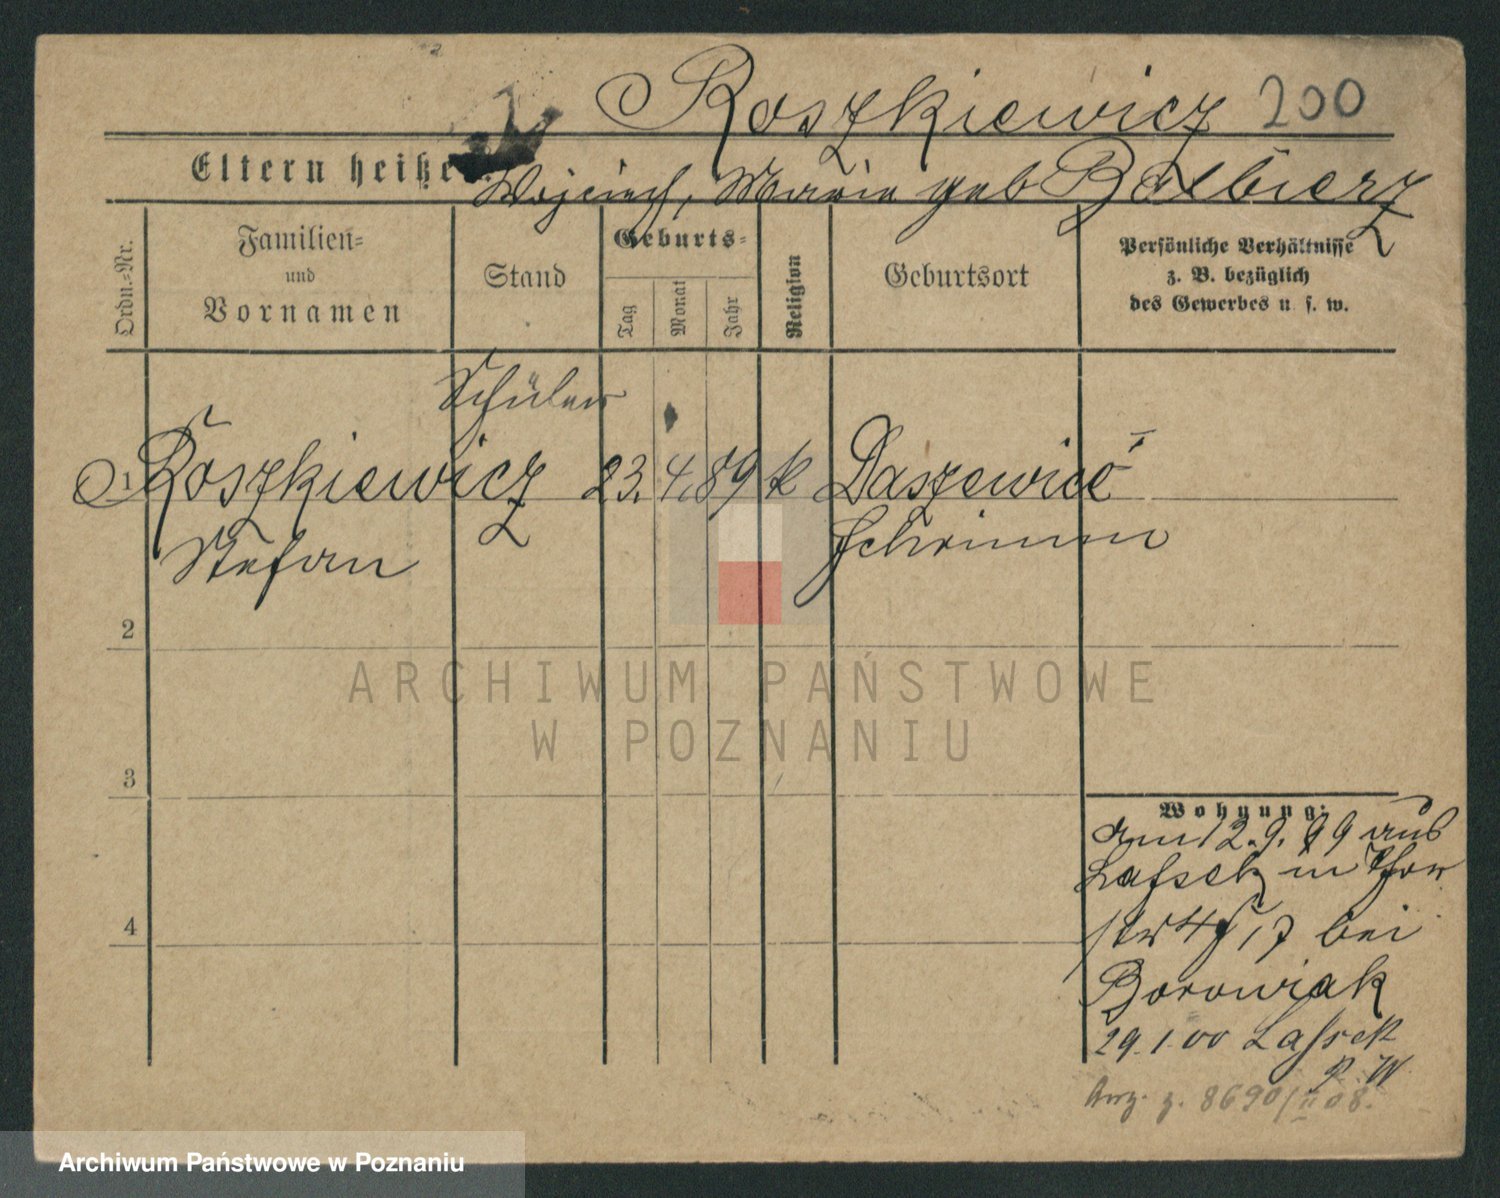 Roszkiewicz 200
Eltern heiße
Wojciech, Maria geb Balbierz
Ordn.-Nr.
Familien-
und
Vornamen
Stand
Geburts-
Tag
Monat
Jahr
Religion
Geburtsort
Persönliche Verhältnisse
z. B. bezüglich
des Gewerbes u. s. w.
Schüler
1 Roszkiewicz 23. 4. 89 k Daszewice
Stefan Schrimm
2
3
4
Wohnung:
am 12.9.99 aus
Lassek in Thor
17 bei
Borowiak
29.1.00 Lassek
P. W
Anz. z. 8690/II 08.
ARCHIWUM PAŃSTWOWE
W POZNANIU
Archiwum Państwowe w Poznaniu